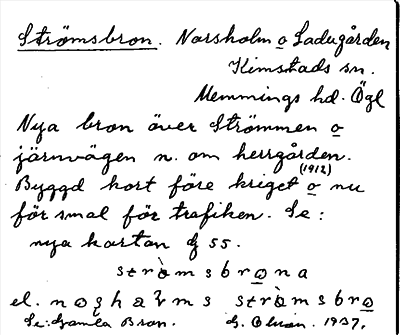 Strömsbron. Norsholm o Ladugården
Kimstads sn.
Memmings hd. Ögl
Nya bron över Strömmen o
järnvägen n. om herrgården.
Byggd kort före kriget (1912) o nu
för smal för trafiken. Se:
nya kartan f 55.
strömsbrona
el. noshalms strömsbro
Se: Gamla Bron. G. Olson. 1937.